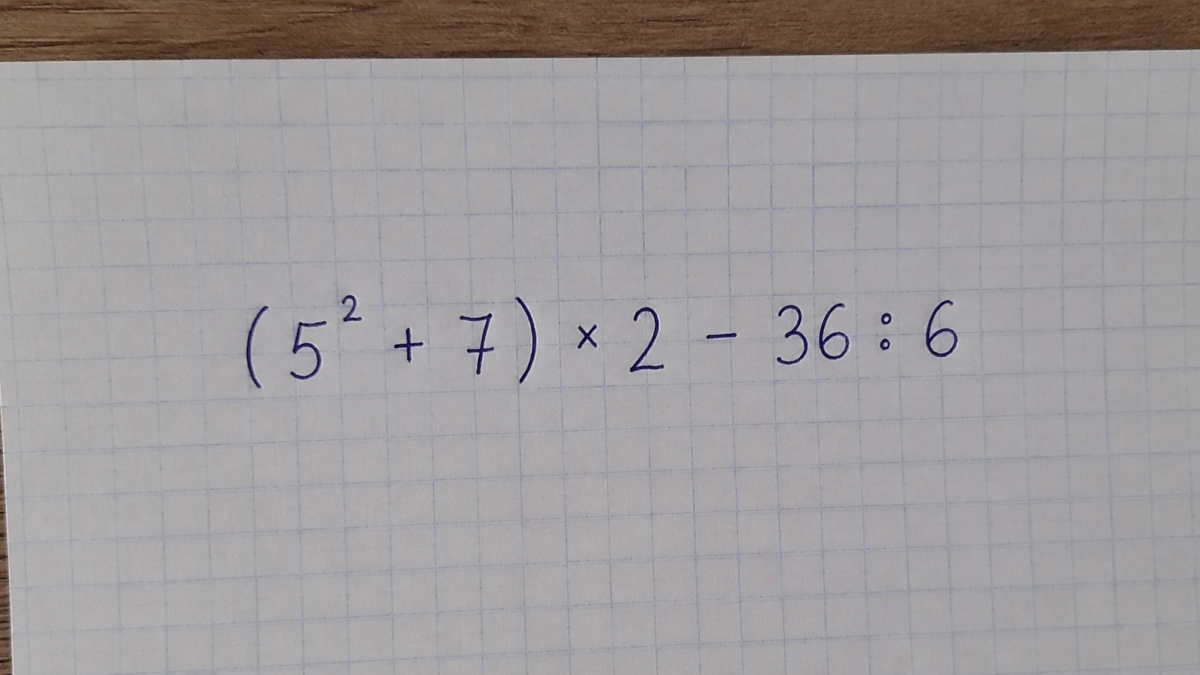 (5² + 7) × 2 - 36 : 6